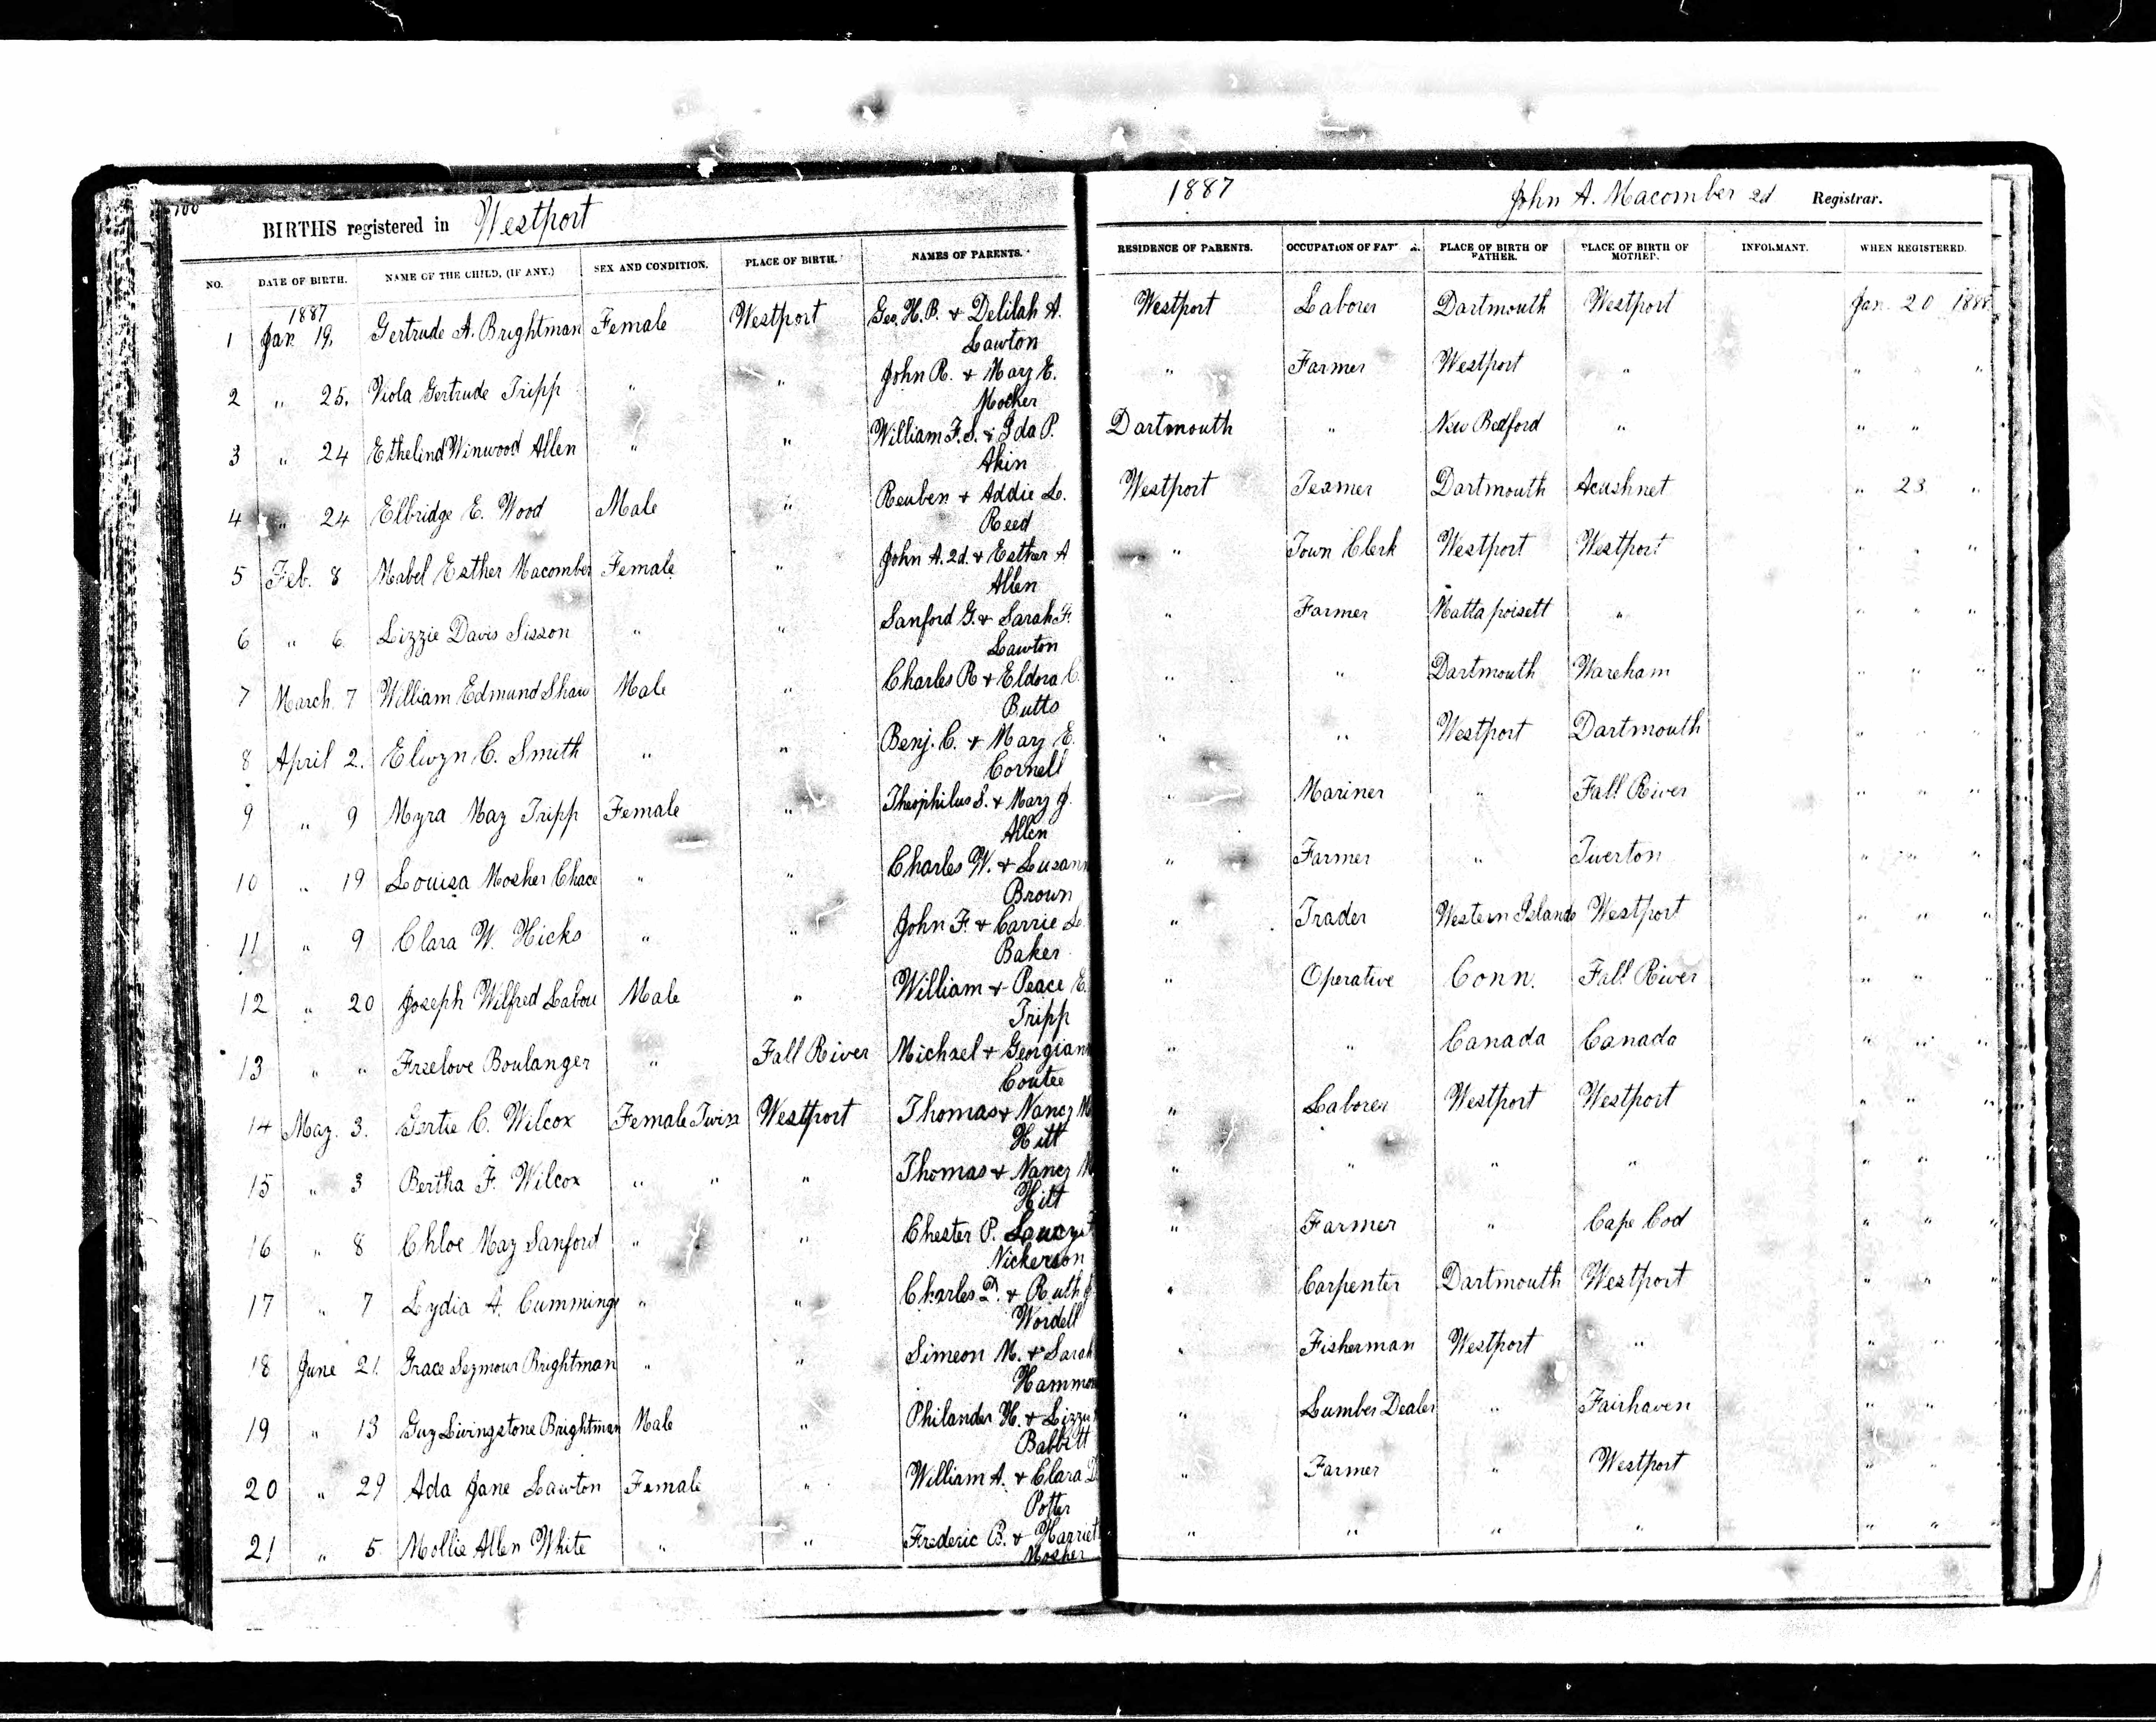 100
BIRTHS registered in Westport
NO. DATE OF BIRTH. NAME OF THE CHILD, (IF ANY.) SEX AND CONDITION. PLACE OF BIRTH. NAMES OF PARENTS.
1887
1 Jan 19. Gertrude A. Brightman Female Westport Geo. H. B. & Delilah A.
Lawton
2 " 25. Viola Gertrude Tripp " " John R. & Mary E.
Mosher
3 " 24 Ethelind Winwood Allen " " William F. S. & Ida P.
Akin
4 " 24 Elbridge E. Wood Male " Reuben & Addie L.
Reed
5 Feb. 8 Mabel Esther Macomber Female " John A. 2d. & Esther A
Allen
6 " 6. Lizzie Davis Sisson " " Sanford G. & Sarah F.
Lawton
7 March 7 William Edmund Shaw Male " Charles R & Eldora C.
Butts
8 April 2. Elwyn C. Smith " " Benj. C. & Mary E.
Cornell
9 " 9 Myra May Tripp Female " Theophilus S. & Mary J.
Allen
10 " 19 Louisa Mosher Chace " " Charles W. & Susann
Brown
11 " 9 Clara W. Hicks " " John F. & Carrie L.
Baker
12 " 20 Joseph Wilfred Labou Male " William & Peace E.
Tripp
13 " " Freelove Boulanger " Fall River Michael & Georgian
Coutee
14 May. 3. Gertie C. Wilcox Female Twin Westport Thomas & Nancy M
Hitt
15 " 3 Bertha F. Wilcox " " " Thomas & Nancy M
Hitt
16 " 8 Chloe May Sanford " " Chester P.
Nickerson
17 " 7 Lydia A. Cummings " " Charles D. & Ruth J.
Wordell
18 June 21. Grace Seymour Brightman " " Simeon M. & Sarah
Hammon
19 " 13 Guy Livingstone Brightman Male " Philander H. & Lizzie
Babbitt
20 " 29 Ada Jane Lawton Female " William A. & Clara D
Potter
21 " 5. Mollie Allen White " " Frederic B. & Harriet
Mosher
1887 John A. Macomber 2d Registrar.
RESIDENCE OF PARENTS. OCCUPATION OF FAT PLACE OF BIRTH OF FATHER. PLACE OF BIRTH OF MOTHER. INFORMANT. WHEN REGISTERED.
Westport Laborer Dartmouth Westport Jan. 20 1888
" Farmer Westport " " "
Dartmouth " New Bedford " " "
Westport Teamer Dartmouth Acushnet " 23 "
" Town Clerk Westport Westport " " "
" Farmer Mattapoisett " " " "
" " Dartmouth Wareham " " "
" " Westport Dartmouth " " "
" Mariner " Fall River " " "
" Farmer " Tiverton " " "
" Trader Western Islands Westport " " "
" Operative Conn. Fall River " " "
" " Canada Canada " " "
" Laborer Westport Westport " " "
" " " " " " "
" Farmer " Cape Cod " " "
" Carpenter Dartmouth Westport " " "
" Fisherman Westport " " " "
" Lumber Dealer " Fairhaven " " "
" Farmer " Westport " " "
" " " " " " "